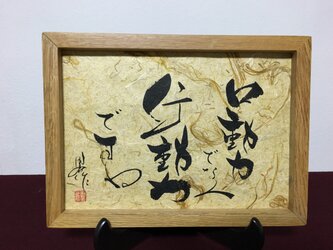 口動力
でなく
行動力
ですね